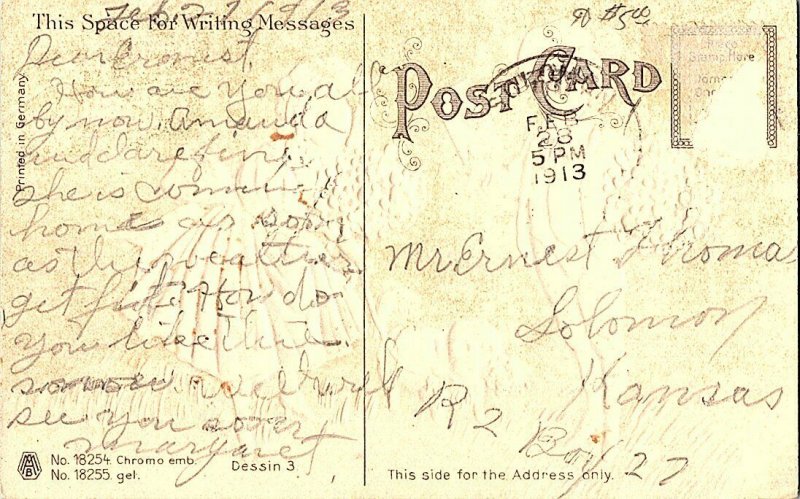 Feb 27 1913
This Space For Writing Messages
Dear Ernest
How are you all
by now. Amanda
and I are fine
she is comming
home as soon
as the weather
get fit. How do
you like the
snow well will
see you soon
Margaret
Printed in Germany
No. 18254. Chromo emb.
No. 18255. gel.
Dessin 3
$5.00
POST CARD
FEB
28
5 PM
1913
Place
Stamp Here
Mr Ernest Thomas
Solomon
Kansas
R 2
Box 27
This side for the Address only.